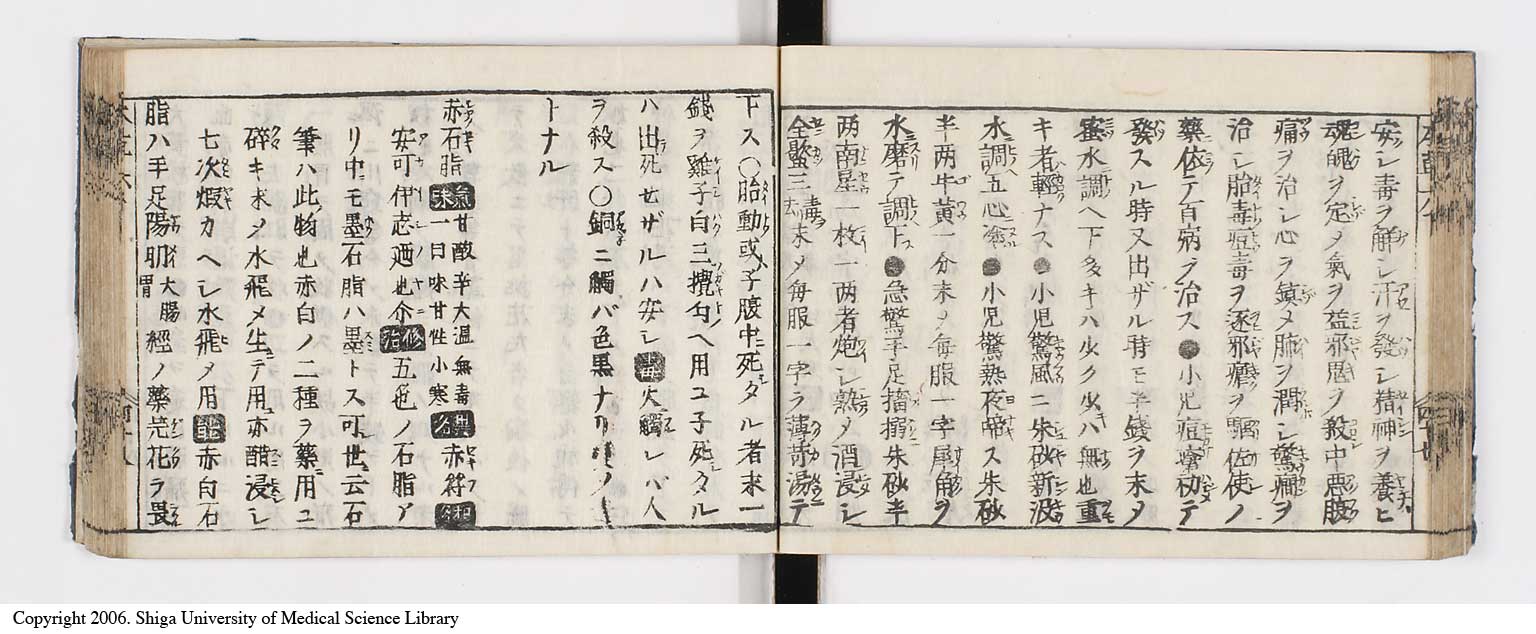 安シ毒ヲ解シ汗ヲ發シ精神ヲ養ヒ
魂魄ヲ定メ氣ヲ益邪悪ノ殺中悪腹
痛ヲ治シ心ヲ鎮メ肺ヲ潤シ驚癇ヲ
治シ胎毒痘毒ヲ逐邪瘧ヲ驅佐使ノ
藥依テ百病ヲ治ス●小児痘瘡初テ
發スル時又出ザル時モ半錢ヲ末メ
蜜水調ヘ下多キハ少ク少ハ無也重
キ者輕ナス●小児驚風ニ朱砂新汲
水調五心塗●小児驚熱夜啼ス朱砂
半两牛黄一分末メ毎服一字犀角ヲ
水磨テ調下●急驚手足搐搦朱砂半
两南星一枚一两者炮シ熟メ酒浸シ
全蝎三毒末メ毎服一字ラ薄荷湯テ
下ス〇胎動或ハ子腹中死タル者末一
錢ヲ雞子白三攪匀ヘ用ユ子死タル
ハ出死セザルハ安シ 火觸レバ人
ヲ殺ス〇銅ニ觸バ色黒ナリ
トナル
赤石脂 氣味 甘酸辛大温無毒一曰味甘性小寒 異名 赤符 和名
安可伊志廼也介 修治 五色ノ石脂ア
リ中モ墨石脂ハ墨トス可世云石
筆ハ此物也赤白ノ二種ヲ藥用ユ
碎キ末メ水飛メ生テ用亦醋浸シ
七次煆カヘシ水飛メ用 能 赤白石
脂ハ手足陽明大腸胃經ノ藥芫花ラ畏
Copyright 2006. Shiga University of Medical Science Library